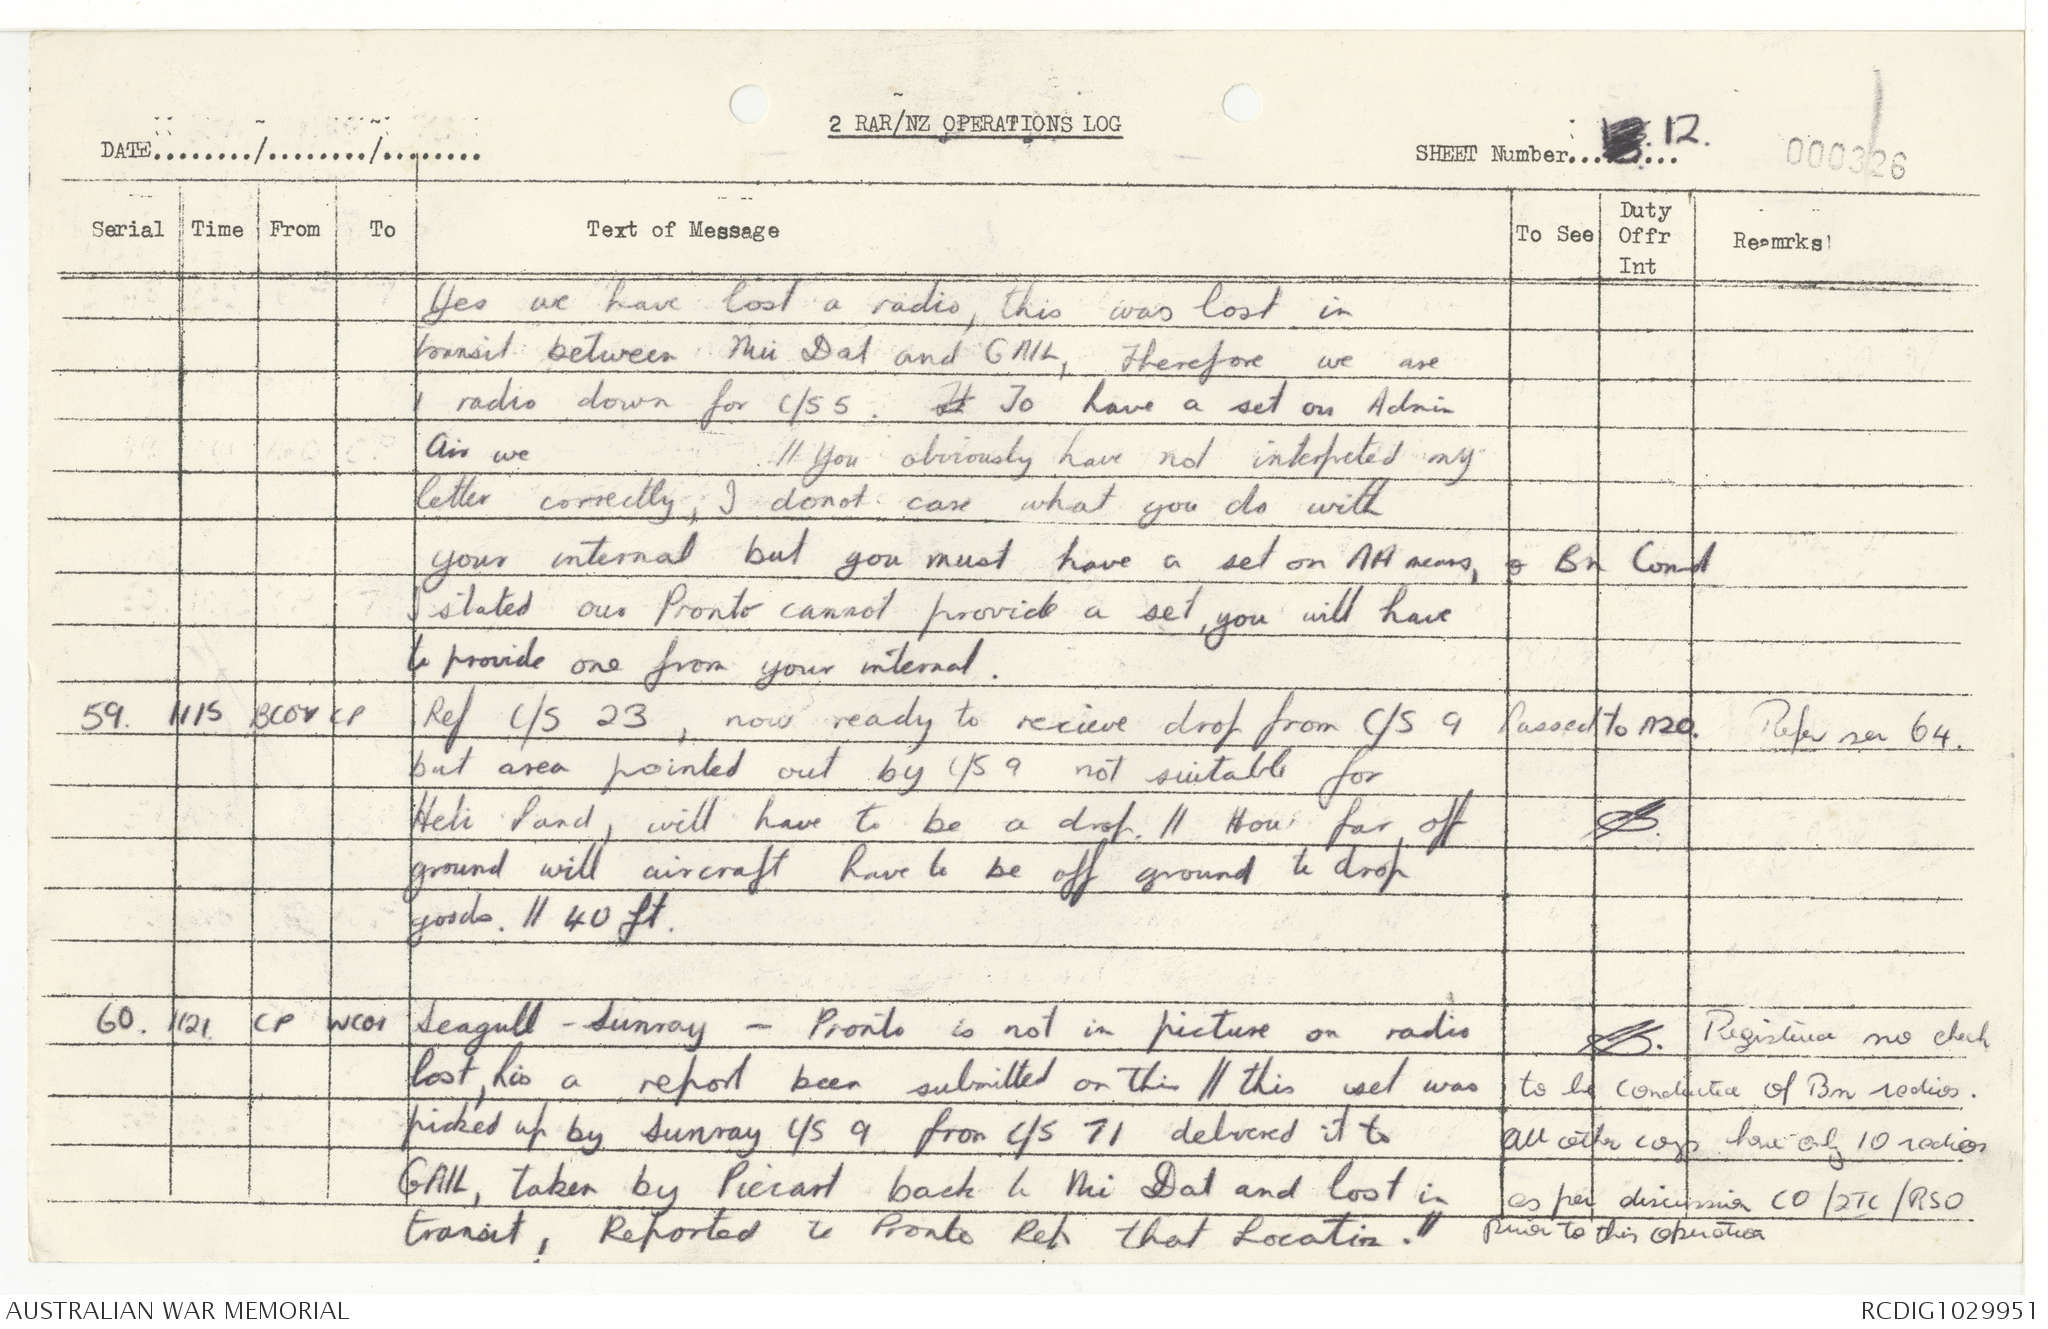 2 RAR/NZ OPERATIONS LOG
DATE......../......../........
SHEET Number... 12.
000326
Serial Time From To Text of Message To See Duty Offr Int Remrks
Yes we have lost a radio, this was lost in
transit between Nui Dat and GAIL, therefore we are
1 radio down for C/S 5. To have a set on Admin
Air we // You obviously have not interpeted my
letter correctly, I donot care what you do with
your internal but you must have a set on AA means, Bn Comd
I stated our Pronto cannot provide a set, you will have
to provide one from your internal.
59. 1115 BCOY CP Ref C/S 23, now ready to recieve drop from C/S 9 Passed to A20. Refer ser 64.
but area pointed out by C/S 9 not suitable for
Heli Pand, will have to be a drop. // How far off
ground will aircraft have to be off ground to drop
goods. // 40 ft.
60. 1121. CP WCOY Seagull - Sunray - Pronto is not in picture on radio
lost, his a report been submitted on this // this set was
picked up by Sunray C/S 9 from C/S 71 delivered it to
GAIL, taken by Piecart back to Nui Dat and lost in
transit, Reported to Pronto Rep that Location. //
no check
to be conducted of Bn radios.
All other coys have only 10 radios
as per discussion CO/2IC/RSO
Prior to this operation
AUSTRALIAN WAR MEMORIAL
RCDIG1029951